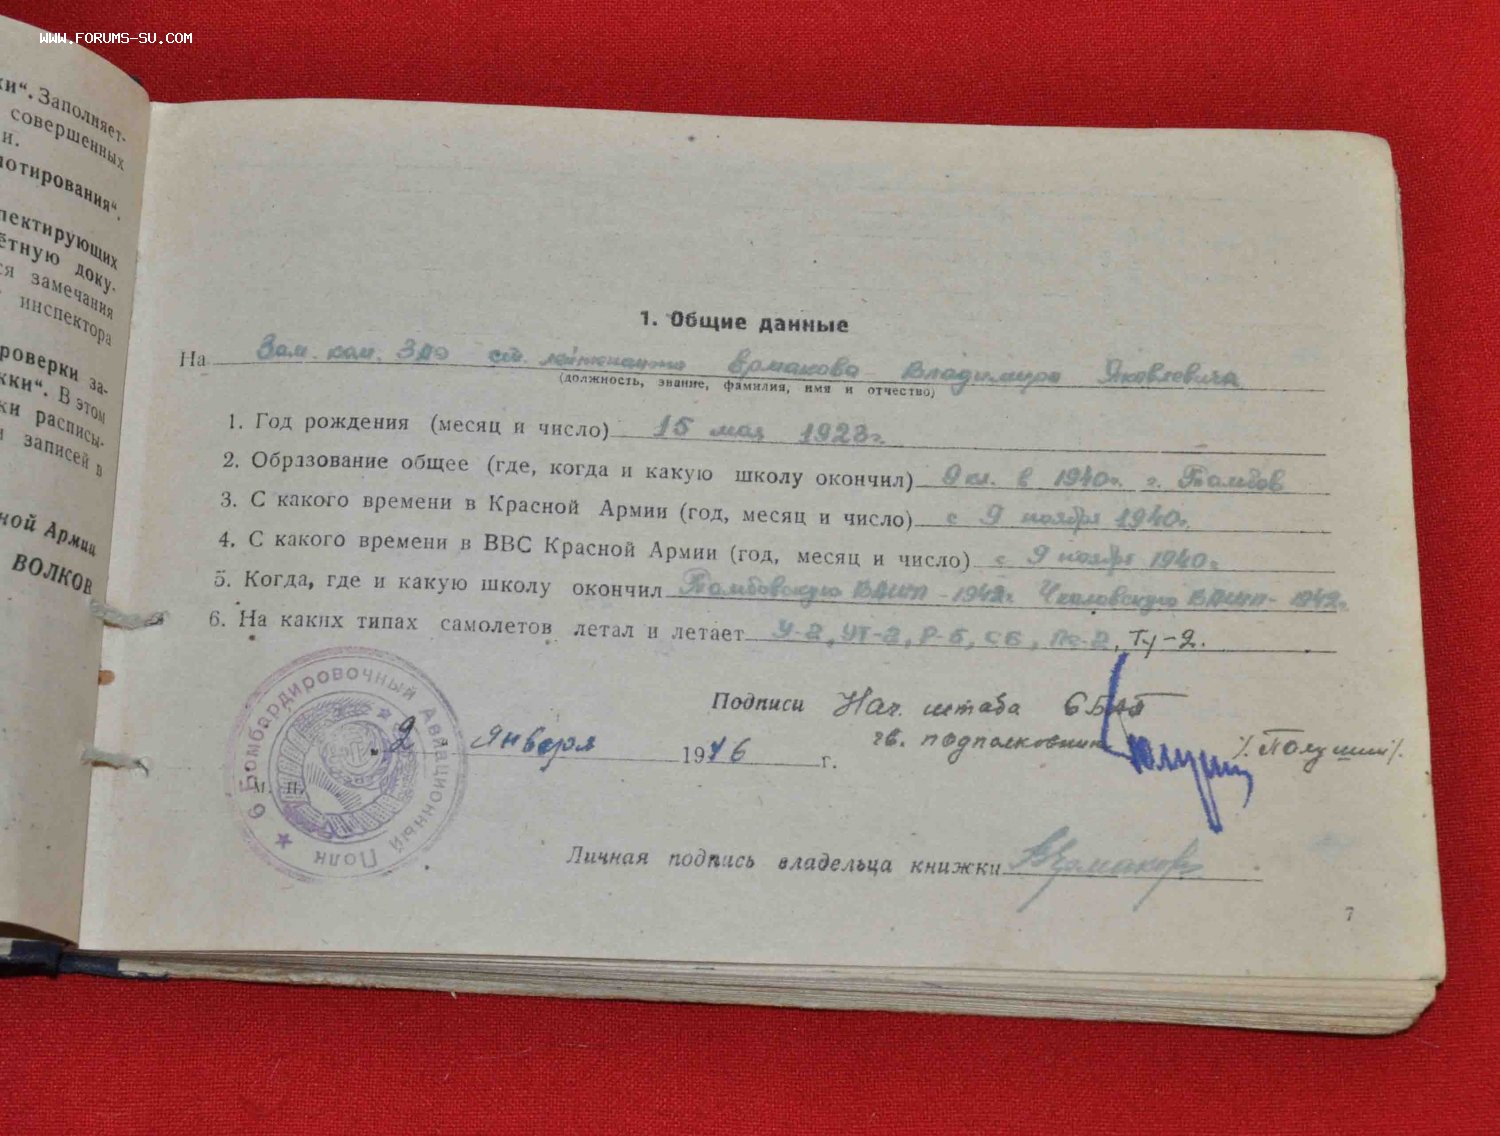 WWW.FORUMS-SU.COM
ки“. Заполняет-
совершенных
и.
лотирования“.
пектирующих
ётную доку-
ся замечания
инспектора
роверки за-
жки“. В этом
ки расписы-
и записей в
ной Армии
ВОЛКОВ
1. Общие данные
На Зам. ком. Заэ ст. лейтенанта Ермакова Владимира Яковлевича
(должность, звание, фамилия, имя и отчество)
1. Год рождения (месяц и число) 15 мая 1923г.
2. Образование общее (где, когда и какую школу окончил) 9 кл. в 1940г. г. Тамбов
3. С какого времени в Красной Армии (год, месяц и число) с 9 ноября 1940г.
4. С какого времени в ВВС Красной Армии (год, месяц и число) с 9 ноября 1940г.
5. Когда, где и какую школу окончил Тамбовскую ВАШП - 1942г. Чкаловскую ВАШП - 1942г.
6. На каких типах самолетов летал и летает У-2, УТ-2, Р-5, СБ, Пе-2, Ту-2.
Подписи Нач. штаба 6 БАП
гв. подполковник /Полуший/.
9 Января 1946 г.
М. П.
6 Бомбардировочный Авиационный Полк
Личная подпись владельца книжки ВЕрмаков
7